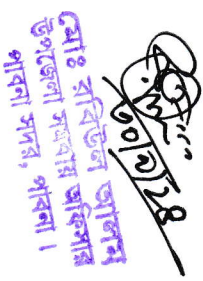 মোঃ রবিউল আলম
উপজেলা সমবায় অফিসার
পাবনা সদর, পাবনা।